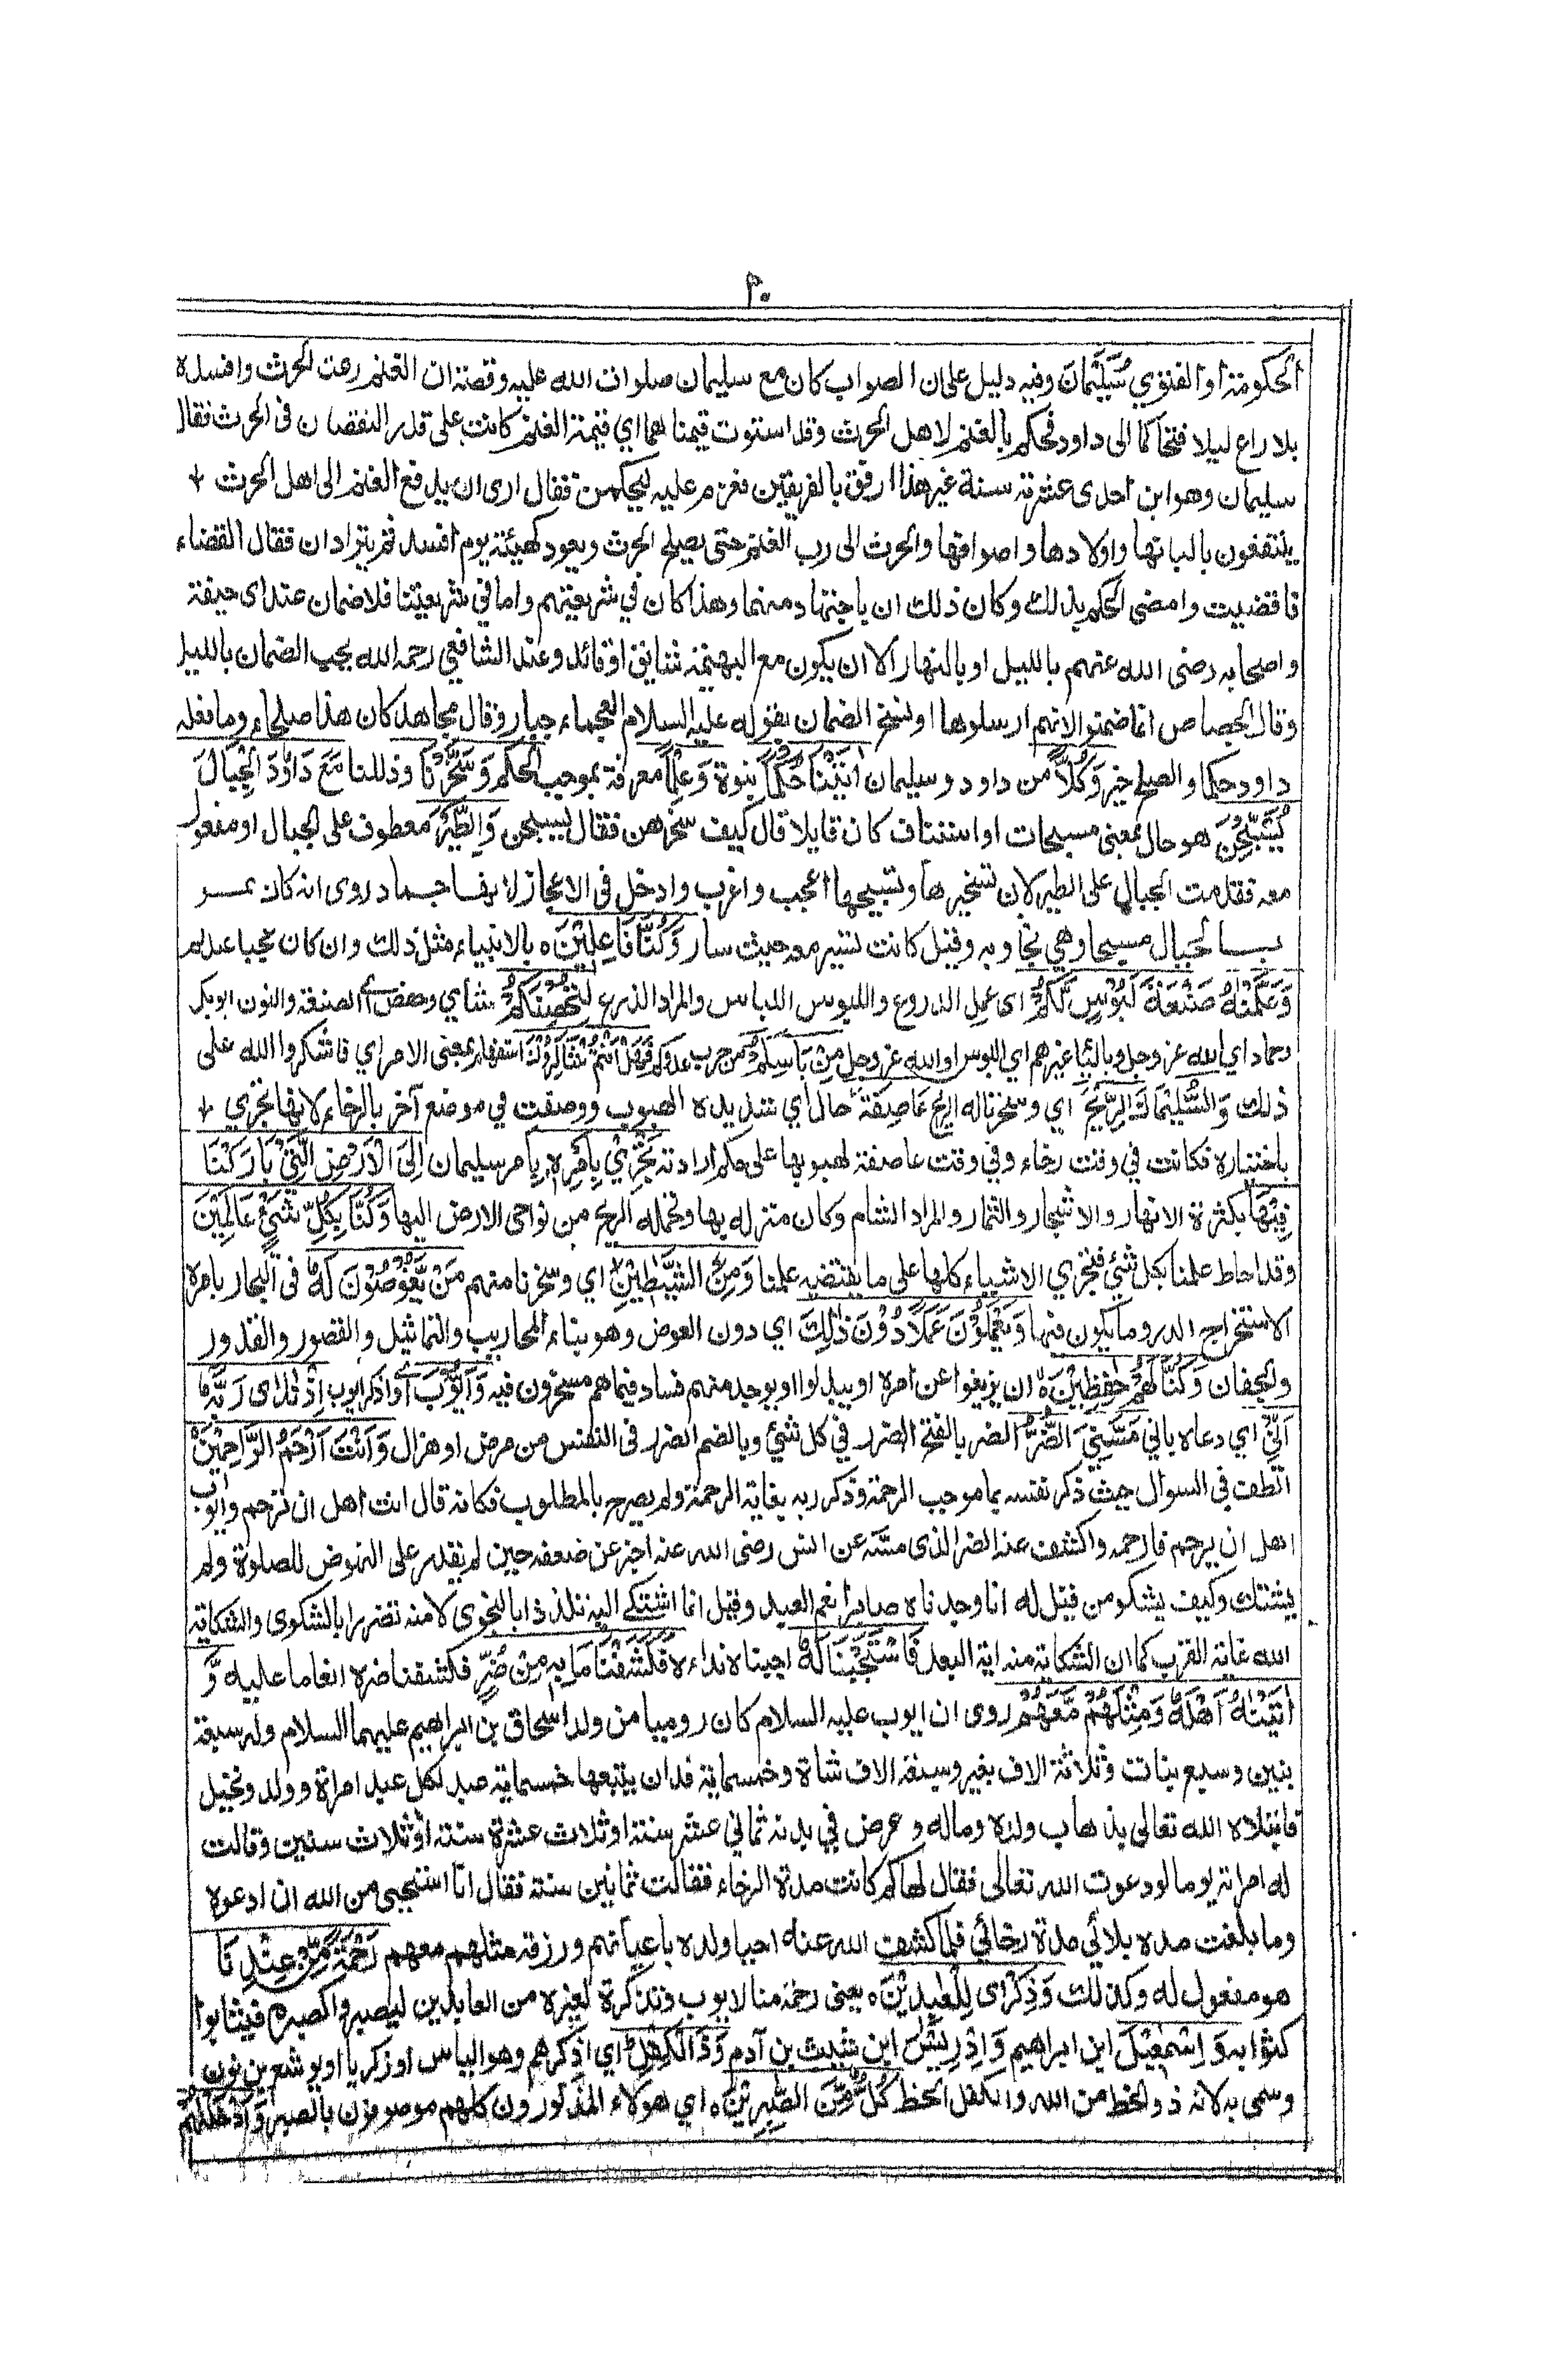 ٣٠
الحكومة او الفتوى سُلَيْمٰنَ وفيه دليل على ان الصواب كان مع سليمان صلوات الله عليه وقصته ان الغنم رعت الحرث وافسده
بلا راع ليلا فتحاكما الى داود فحكم بالغنم لاهل الحرث وقد استوت قيمتا هما اي قيمة الغنم كانت على قدر النقصان فى الحرث فقال
سليمان وهو ابن احدى عشرة سنة غير هذا ارفق بالفريقين فعزم عليه ليحكمن فقال ارى ان يدفع الغنم الى اهل الحرث
ينتفعون بالبانها واولادها واصوافها والحرث الى رب الغنم حتى يصلح الحرث ويعود كهيئته يوم افسد ثم يترادان فقال القضاء
ما قضيت وامضى الحكم بذلك وكان ذلك ان باجتهاد منهما وهذا كان في شريعتهم واما في شريعتنا فلا ضمان عند ابى حنيفة
واصحابه رضى الله عنهم بالليل او بالنهار الا ان يكون مع البهيمة سائق او قائد وعند الشافعي رحمه الله يجب الضمان بالليل
وقال الجصاص انما ضمنوا لانهم ارسلوها او نسخ الضمان بقوله عليه السلام العجماء جبار وقال مجاهد كان هذا صلحا وما فعله
داود حكما والصلح خير وَكُلًّا من داود وسليمان اٰتَيْنَا حُكْمًا نبوة وَعِلْمًا معرفة بموجب الحكم وَسَخَّرْنَا وذللنا مَعَ دَاوٗدَ الْجِبَالَ
يُسَبِّحْنَ هو حال بمعنى مسبحات او استئناف كان قايلا قال كيف سخرهن فقال يسبحن وَالطَّيْرَ معطوف على الجبال او مفعول
معه فقدمت الجبال على الطير لان تسخيرها وتسبيحها اعجب واغرب وادخل فى الاعجاز لانها جماد روى انه كان يمر
بالجبال مسبحا وهي تجاوبه وقيل كانت تسير معه حيث سار وَكُنَّا فَاعِلِيْنَ ه بالانبياء مثل ذلك وان كان عجبا عندكم
وَعَلَّمْنٰهُ صَنْعَةَ لَبُوْسٍ لَّكُمْ اى عمل الدروع واللبوس اللباس والمراد الدرع لِتُحْصِنَكُمْ شامي وحفص اي الصنعة والنون ابوبكر
وحماد اي الله عز وجل وباليا غيرهم اي اللبوس او الله عز وجل مِّنْ بَاْسِكُمْ من حرب عدوكم فَهَلْ اَنْتُمْ شَاكِرُوْنَ استفهام بمعنى الامر اي فاشكروا الله على
ذلك وَلِسُلَيْمٰنَ الرِّيْحَ اي وسخرنا له الريح عَاصِفَةً حال اي شديدة الهبوب ووصفت في موضع آخر بالرخاء لانها تجري
باختياره فكانت في وقت رخاء وفي وقت عاصفة لهبوبها على حكم ارادته تَجْرِيْ بِاَمْرِهٖ بامر سليمان اِلَى الْاَرْضِ الَّتِيْ بَارَكْنَا
فِيْهَا بكثرة الانهار والاشجار والثمار والمراد الشام وكان منزله بها وتحمله الريح من نواحى الارض اليها وَكُنَّا بِكُلِّ شَيْءٍ عَالِمِيْنَ
وقد احاط علمنا بكل شئ فنجري الاشياء كلها على ما يقتضيه علمنا وَمِنَ الشَّيٰطِيْنِ اي وسخرنا منهم مَنْ يَّغُوْصُوْنَ لَهٗ فى البحار بامره
لاستخراج الدر وما يكون فيها وَيَعْمَلُوْنَ عَمَلًا دُوْنَ ذٰلِكَ اي دون الغوض وهو بناء المحاريب والتماثيل والقصور والقدور
والجفان وَكُنَّا لَهُمْ حٰفِظِيْنَ ه ان يزيغوا عن امره او يبدلوا او يوجد منهم فساد فيما هم مسخرون فيه وَاَيُّوْبَ اي واذكر ايوب اِذْ نَادٰى رَبَّهٗ
اَنِّيْ اي دعاه باني مَسَّنِيَ الضُّرُّ الضر بالفتح الضرر في كل شئ وبالضم الضرر فى النفس من مرض او هزال وَاَنْتَ اَرْحَمُ الرَّاحِمِيْنَ
الطف في السوال حيث ذكر نفسه بما موجب الرحمة وذكر ربه بغاية الرحمة ولم يصرح بالمطلوب فكانه قال انت اهل ان ترحم وايوب
اهل ان يرحم فارحمه واكشف عنه الضر الذى مسه عن انس رضى الله عنه اخبر عن ضعفه حين لم يقدر على النهوض للصلوة ولم
يشتك وكيف يشكو من قيل له انا وجدناه صابرا نعم العبد وقيل انما اشتكے اليه تلذذا بالنجوى لا منه تضررا بالشكوى والشكاية
الله غاية القرب كما ان الشكاية منه اية البعد فَاسْتَجَبْنَا لَهٗ اجبنا نداءه فَكَشَفْنَا مَا بِهٖ مِنْ ضُرٍّ فكشفنا ضره انعاما عليه وَّ
اٰتَيْنٰهُ اَهْلَهٗ وَمِثْلَهُمْ مَّعَهُمْ روى ان ايوب عليه السلام كان روميا من ولد اسحاق بن ابراهيم عليهما السلام وله سبعة
بنين وسبع بنات وثلاثة الاف بعير وسبعة الاف شاة وخمسماية فدان يتبعها خمسماية عبد لكل عبد امراة وولد ونخيل
فابتلاه الله تعالى بذهاب ولده وماله و عرض في بدنه ثماني عشر سنة او ثلاث عشرة سنة او ثلاث سنين وقالت
له امراته يوما لو دعوت الله تعالى فقال لها كم كانت مدة الرخاء فقالت ثمانين سنة فقال انا استحيى من الله ان ادعوه
وما بلغت مدة بلائي مدة رخائي فلما كشف الله عنه احيا ولده باعيانهم ورزقه مثلهم معهم رَحْمَةً مِّنْ عِنْدِنَا
هو مفعول له وكذلك وَذِكْرٰى لِلْعٰبِدِيْنَ ه يعنى رحمة منا لايوب وتذكرة لغيره من العابدين ليصبروا كصبره فيثابوا
كثوابه وَ اِسْمٰعِيْلَ ابن ابراهيم وَاِدْرِيْسَ ابن شيث بن آدم وَذَا الْكِفْلِ اي اذكرهم وهو الياس او زكريا او يوشع بن نون
وسمى به لانه ذو الحظ من الله والكفل الحظ كُلٌّ مِّنَ الصّٰبِرِيْنَ ه اي هولاء المذكورون كلهم موصوفون بالصبر وَاَدْخَلْنٰهُمْ